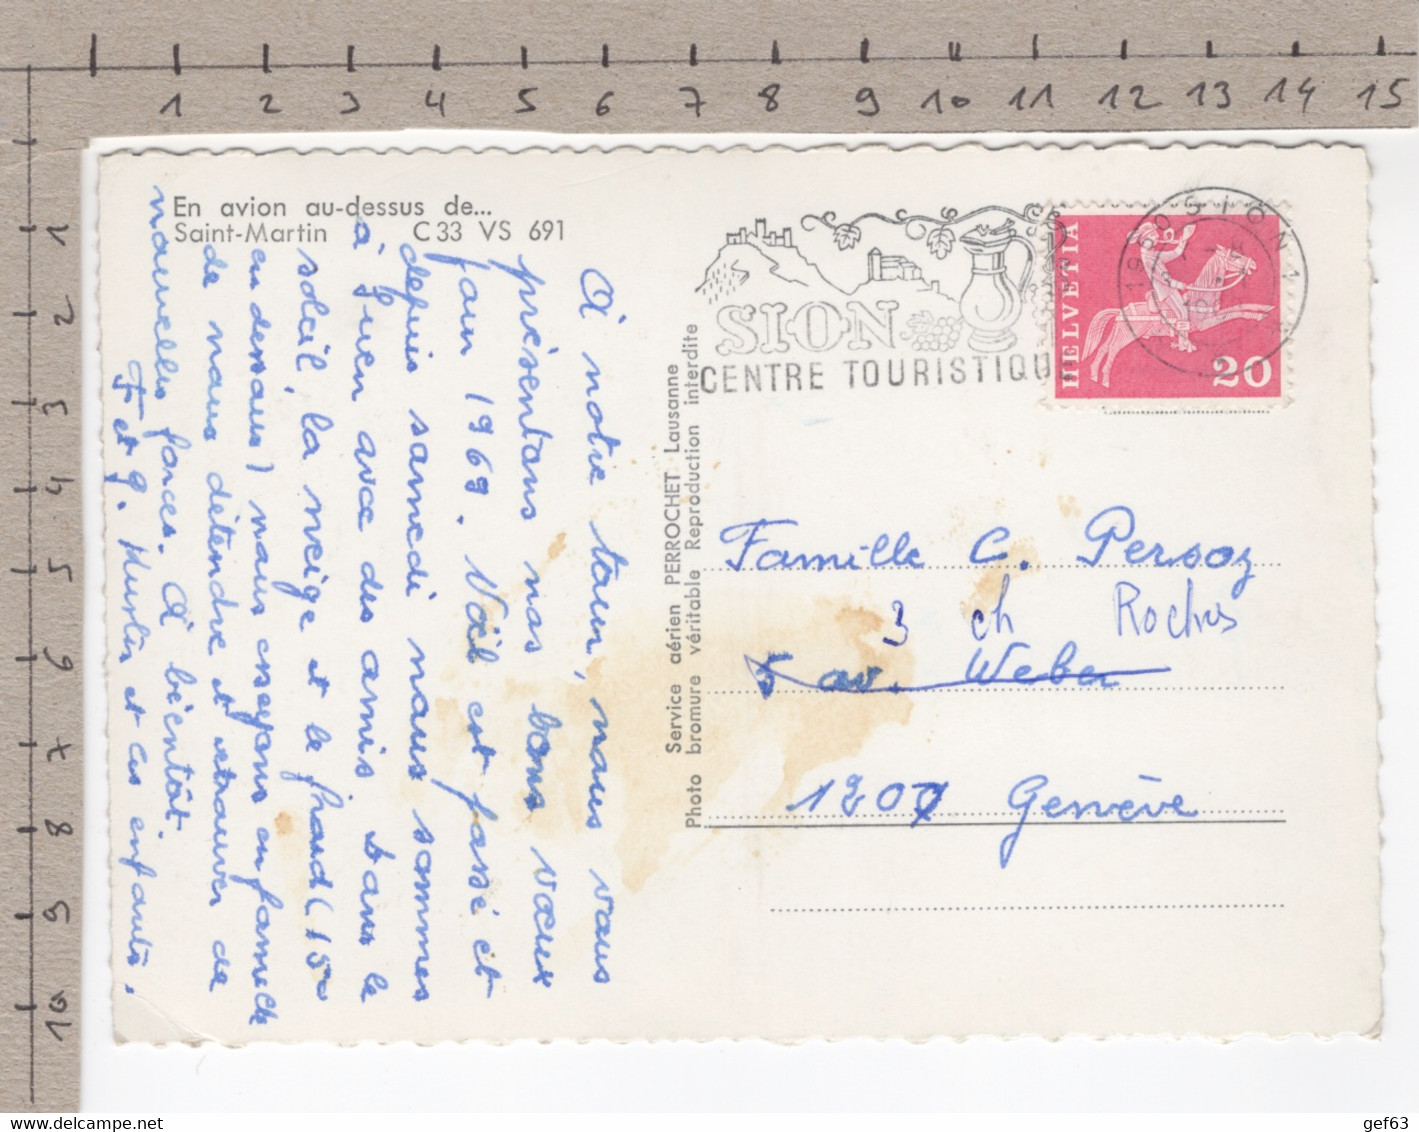 1 2 3 4 5 6 7 8 9 10 11 12 13 14 15
1 2 3 4 5 6 7 8 9 10
En avion au-dessus de...
Saint-Martin C 33 VS 691
À notre tour, nous vous
présentons nos bons vœux
pour 1969. Noël est passé et
depuis samedi nous sommes
à avec des amis. Dans le
soleil, la neige et le froid (15°
en dessous) nous essayons en famille
de nous détendre et retrouver de
nouvelles forces. À bientôt.
F et G. et les enfants.
Service aérien PERROCHET Lausanne
Photo bromure véritable Reproduction interdite
SION
CENTRE TOURISTIQUE
1950 SION 1
HELVETIA
20
Famille C. Persoz
3 ch Roches
5 av. Weber
1207 Genève
gef63